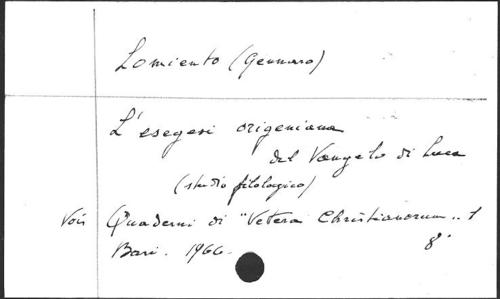 Lomiento (Gennaro)
L'esegesi origeniana
del Vangelo di Luca
(studio filologico)
Vois Quaderni di "Vetera Christianorum.. 1
Bari. 1966. 8°